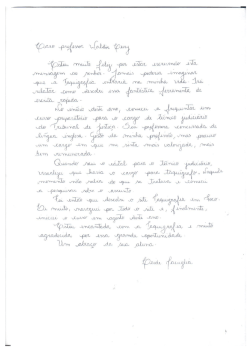 Caro professor Waldir Cury
Estou muito feliz por estar escrevendo esta
mensagem ao senhor. Jamais poderia imaginar
que a Taquigrafia entraria na minha vida. Me
relatar como sendo uma fantástica ferramenta de
escrita rápida.
No início deste ano, comecei a frequentar um
curso preparatório para o cargo de técnico judiciário
do Tribunal de Justiça. Sou professora concursada de
língua inglesa. Gosto da minha profissão, mas posso
um cargo em que me sinta mais valorizada, mais
bem remunerada.
Quando saiu o edital para o técnico judiciário,
verifiquei que havia o cargo para taquígrafo. Naquele
momento não sabia do que se tratava e comecei
a pesquisar sobre o assunto.
Foi então que descobri o site Taquigrafia em Foco.
Me encantei, naveguei por todo o site e, finalmente,
iniciei o curso em agosto deste ano.
Estou encantada com a Taquigrafia e muito
agradecida por essa grande oportunidade.
Um abraço de sua aluna